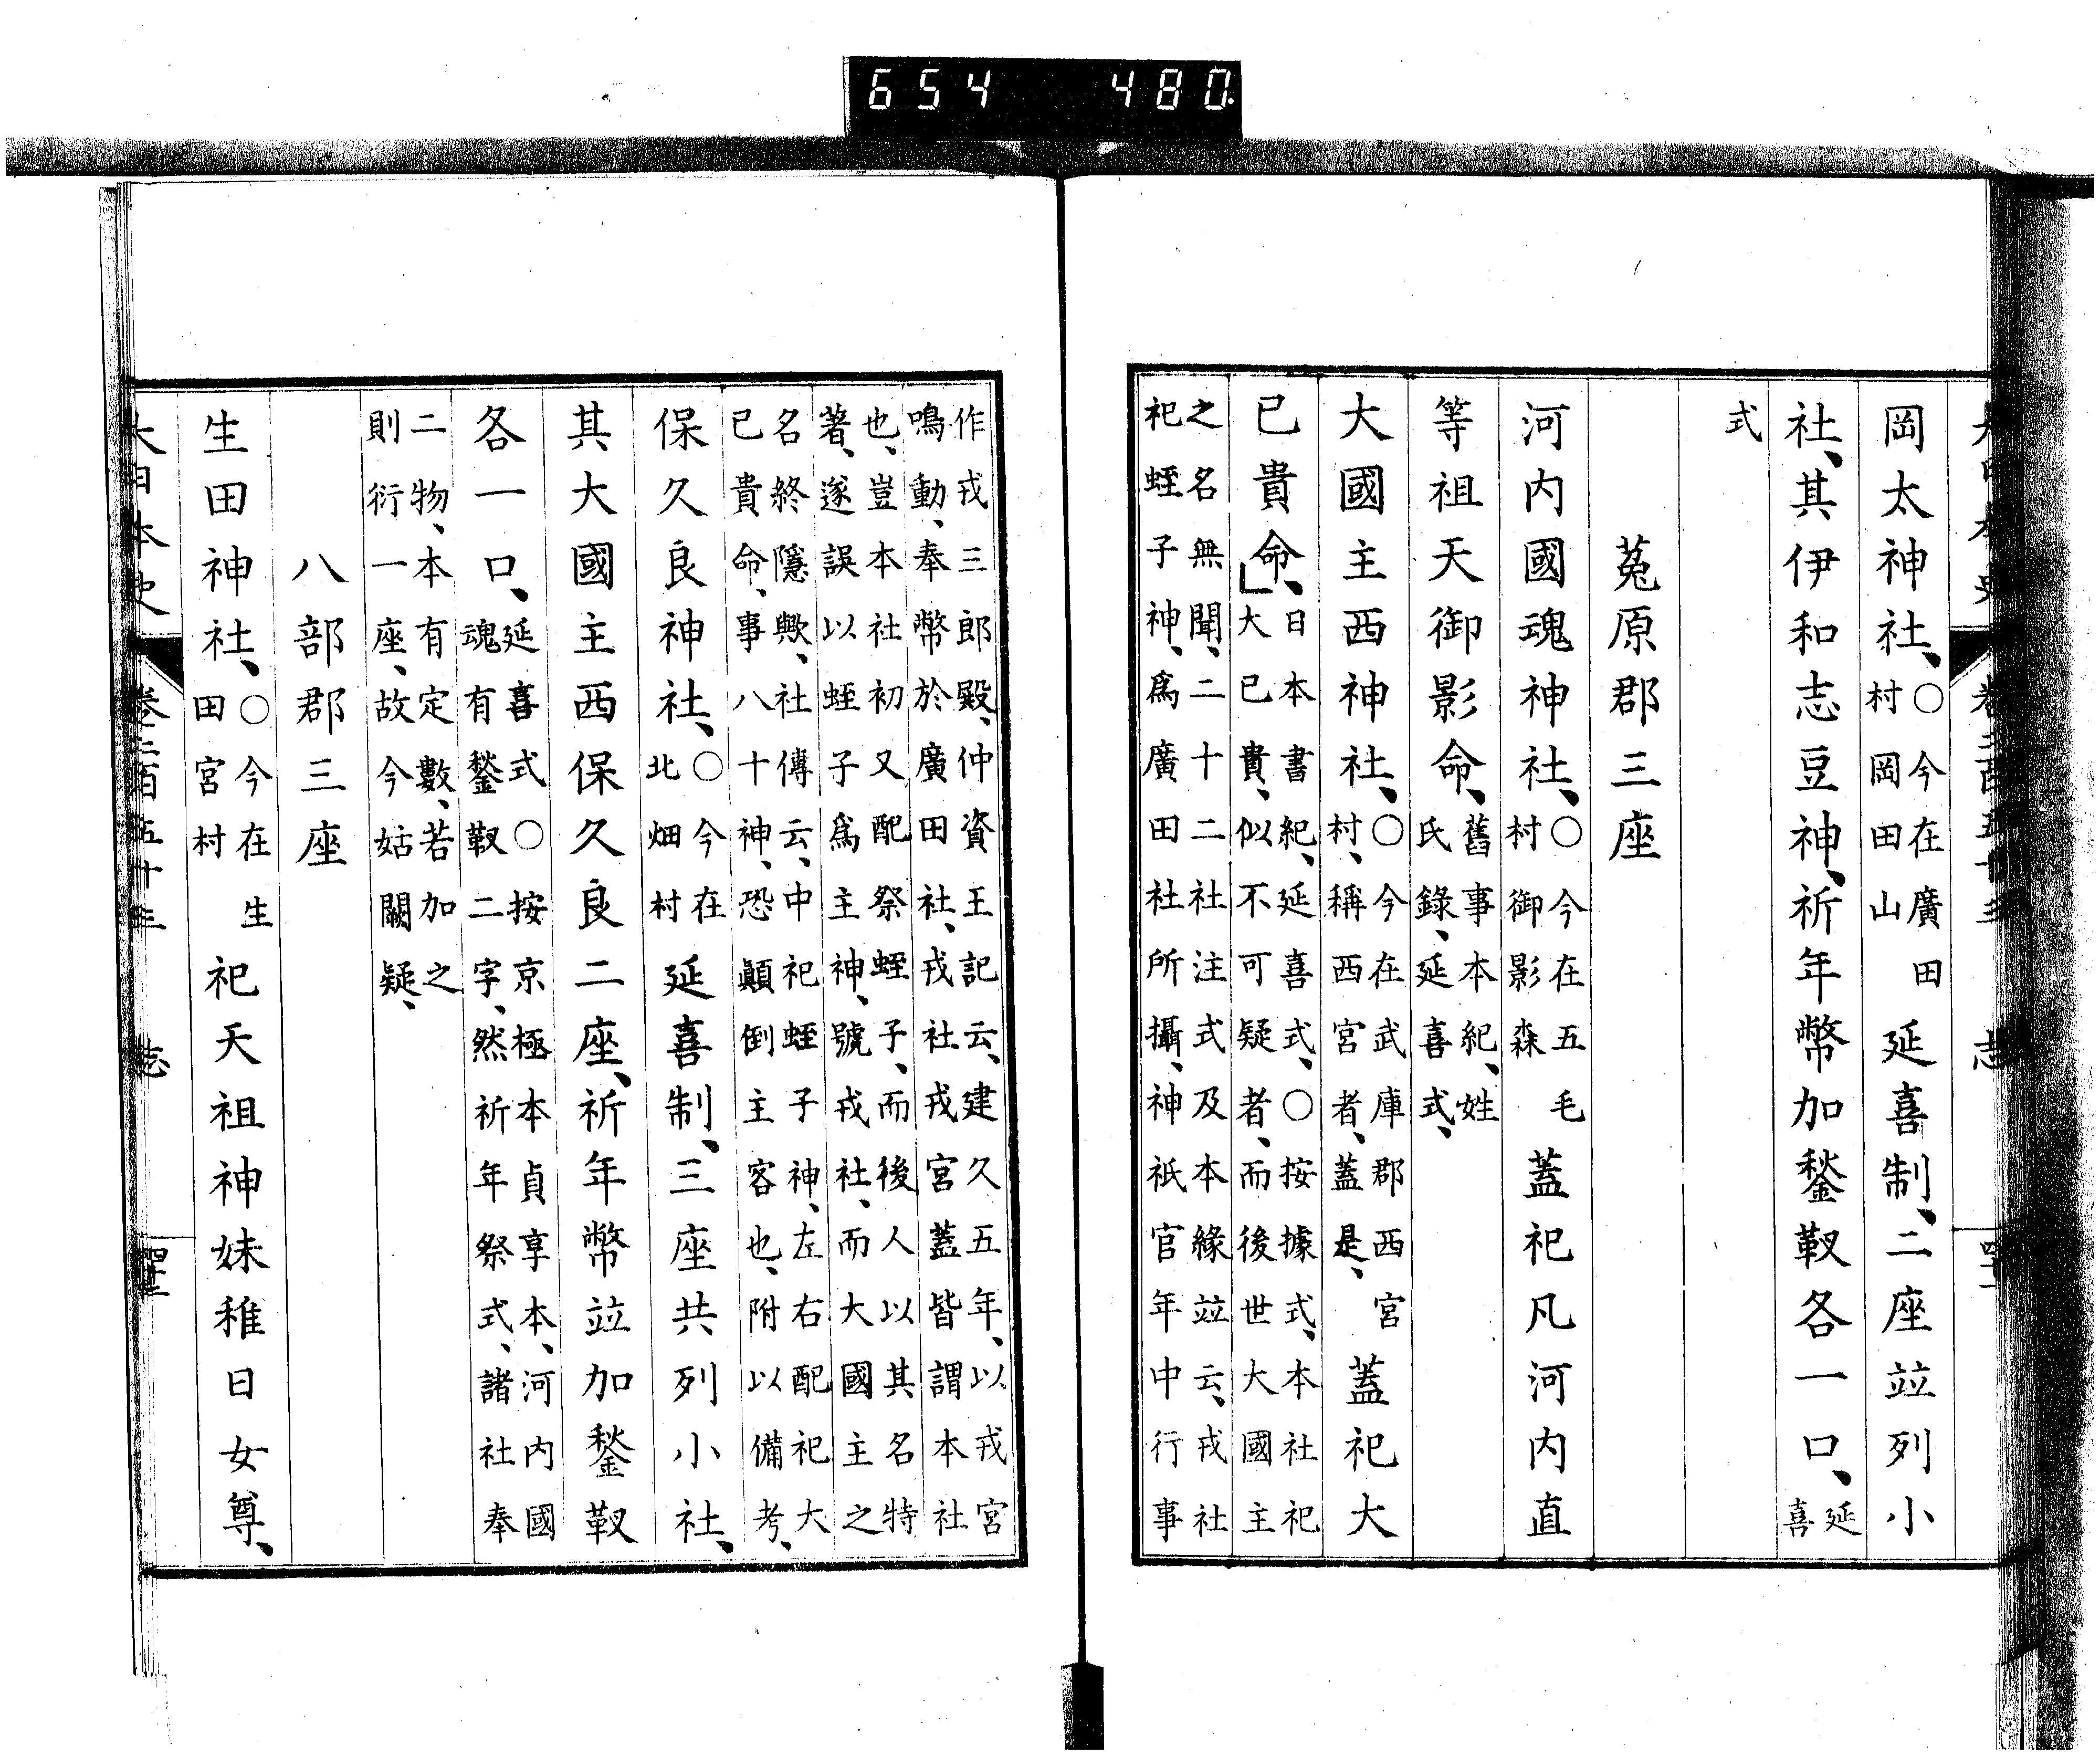 654 480
大日本史 卷二百五十三 志
岡太神社、○今在廣田村岡田山延喜制、二座竝列小
社、其伊和志豆神、祈年幣加鍫靫各一口、延喜
式
菟原郡三座
河內國魂神社、○今在五毛村御影森蓋祀凡河內直
等祖天御影命、舊事本紀、姓氏錄、延喜式、
大國主西神社、○今在武庫郡西宮村、稱西宮者、蓋是、蓋祀大
已貴命、」日本書紀、延喜式、○按據式、本社祀大已貴、似不可疑者、而後世大國主
之名無聞、二十二社注式及本緣竝云、戎社祀蛭子神、爲廣田社所攝、神祇官年中行事
作戎三郎殿、仲資王記云、建久五年、以戎宮鳴動、奉幣於廣田社、戎社戎宮蓋皆謂本社
也、豈本社初又配祭蛭子、而後人以其名特著、遂誤以蛭子爲主神、號戎社、而大國主之
名終隱歟、社傳云、中祀蛭子神、左右配祀大已貴命、事八十神、恐顚倒主客也、附以備考、
保久良神社、○今在北畑村延喜制、三座共列小社、
其大國主西保久良二座、祈年幣竝加鍫靫
各一口、延喜式○按京極本貞享本、河內國魂有鍫靫二字、然祈年祭式、諸社奉
二物、本有定數、若加之則衍一座、故今姑闕疑、
八部郡三座
生田神社、○今在生田宮村祀天祖神妹稚日女尊、
大日本史 卷二百五十三 志